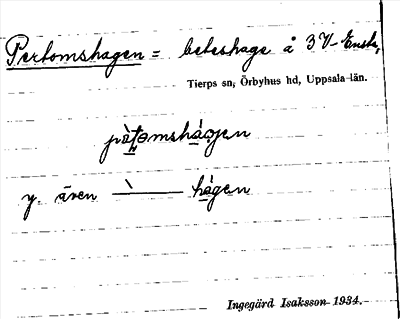 Pertomshagen = beteshage å 3V-Ensta,
Tierps sn, Örbyhus hd, Uppsala län.
pàtomshágen
y. även —\— hágen
Ingegärd Isaksson 1934.